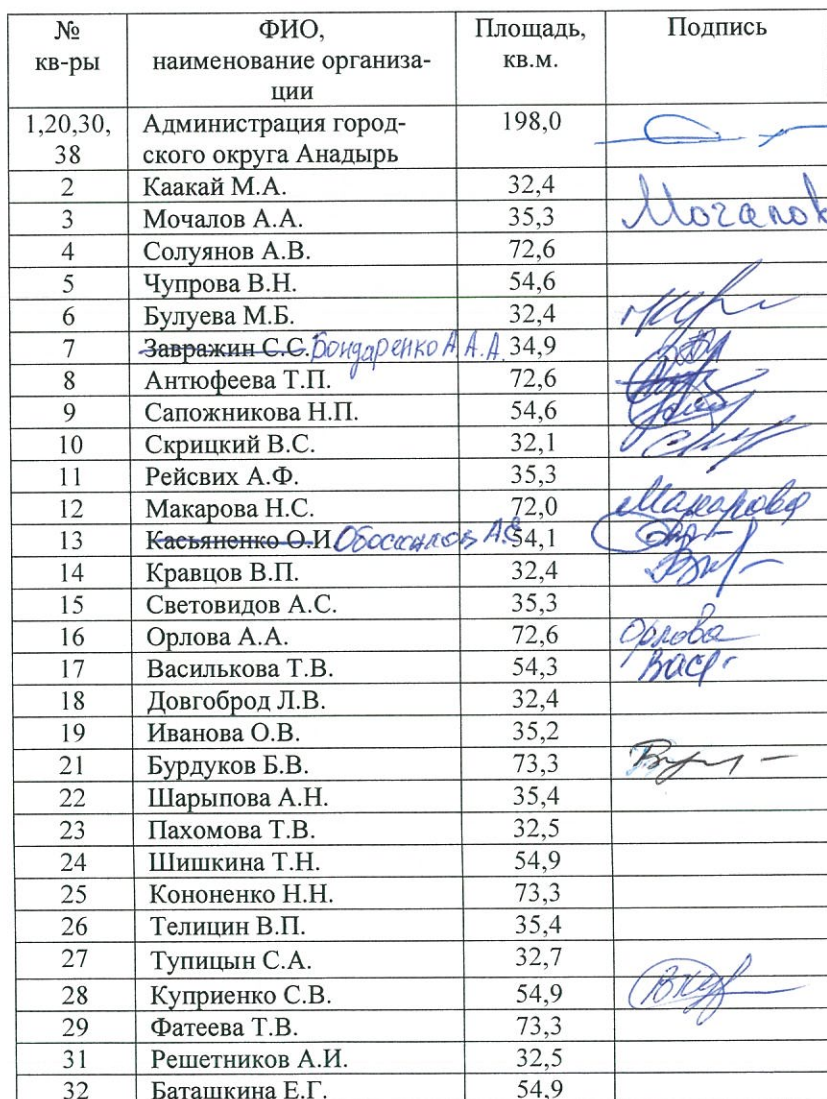 № кв-ры ФИО, наименование организа-ции Площадь, кв.м. Подпись
1,20,30, 38 Администрация город-ского округа Анадырь 198,0
2 Каакай М.А. 32,4
3 Мочалов А.А. 35,3 Мочалов
4 Солуянов А.В. 72,6
5 Чупрова В.Н. 54,6
6 Булуева М.Б. 32,4
7 Завражин С.С. Бондаренко А.А. 34,9
8 Антюфеева Т.П. 72,6
9 Сапожникова Н.П. 54,6
10 Скрицкий В.С. 32,1
11 Рейсвих А.Ф. 35,3
12 Макарова Н.С. 72,0 Макарова
13 Касьяненко О.И. 54,1
14 Кравцов В.П. 32,4
15 Световидов А.С. 35,3
16 Орлова А.А. 72,6 Орлова
17 Василькова Т.В. 54,3 Вас
18 Довгоброд Л.В. 32,4
19 Иванова О.В. 35,2
21 Бурдуков Б.В. 73,3
22 Шарыпова А.Н. 35,4
23 Пахомова Т.В. 32,5
24 Шишкина Т.Н. 54,9
25 Кононенко Н.Н. 73,3
26 Телицин В.П. 35,4
27 Тупицын С.А. 32,7
28 Куприенко С.В. 54,9
29 Фатеева Т.В. 73,3
31 Решетников А.И. 32,5
32 Баташкина Е.Г. 54,9